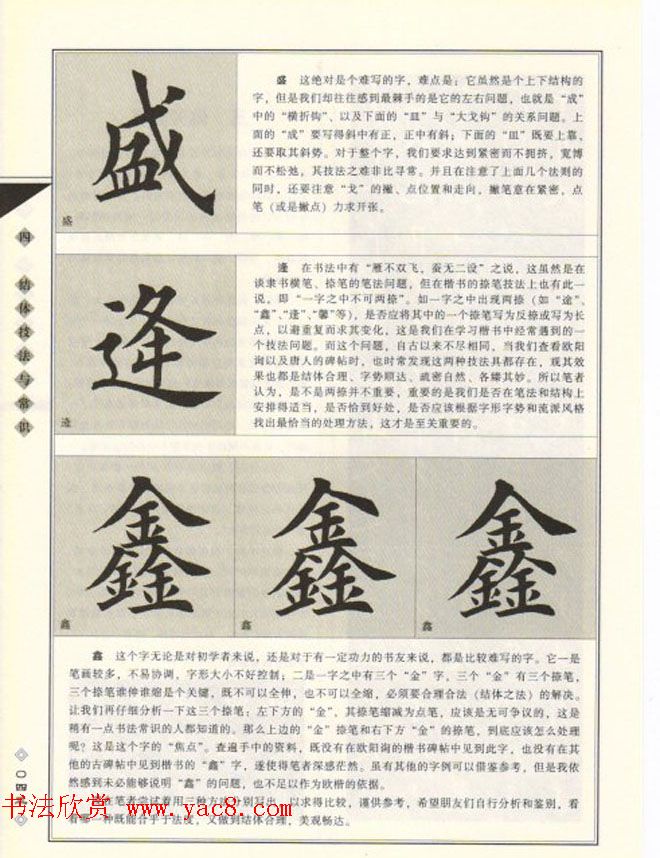 盛
盛　这绝对是个难写的字，难点是：它虽然是个上下结构的
字，但是我们却往往感到最棘手的是它的左右问题，也就是“成”
中的“横折钩”、以及下面的“皿”与“大戈钩”的关系问题。上
面的“成”要写得斜中有正，正中有斜；下面的“皿”既要上靠，
还要取其斜势。对于整个字，我们要求达到紧密而不拥挤，宽博
而不松弛，其技法之难非比寻常。并且在注意了上面几个法则的
同时，还要注意“戈”的撇、点位置和走向，撇笔意在紧密，点
笔（或是撇点）力求开张。
盛
四
结体技法与常识
逢
逢　在书法中有“雁不双飞，蚕无二设”之说，这虽然是在
谈隶书横笔、捺笔的笔法问题，但在楷书的捺笔技法上也有此一
说，即“一字之中不可两捺”。如一字之中出现两捺（如“途”、
“鑫”、“逢”、“馨”等），是否应将其中的一个捺笔写为反捺或写为长
点，以避重复而求其变化，这是我们在学习楷书中经常遇到的一
个技法问题。而这个问题，自古以来不尽相同，当我们查看欧阳
询以及唐人的碑帖时，也时常发现这两种技法具都存在，观其效
果也都是结体合理、字势顺达、疏密自然、各臻其妙。所以笔者
认为，是不是两捺并不重要，重要的是我们是否在笔法和结构上
安排得适当，是否恰到好处，是否应该根据字形字势和流派风格
找出最恰当的处理方法，这才是至关重要的。
逢
鑫 鑫 鑫
鑫 鑫 鑫
鑫　这个字无论是对初学者来说，还是对于有一定功力的书友来说，都是比较难写的字。它一是
笔画较多，不易协调，字形大小不好控制；二是一字之中有三个“金”字，三个“金”有三个捺笔，
三个捺笔谁伸谁缩是个关键，既不可以全伸，也不可以全缩，必须要合理合法（结体之法）的解决。
让我们再仔细分析一下这三个捺笔：左下方的“金”，其捺笔缩减为点笔，应该是无可争议的，这是
稍有一点书法常识的人都知道的。那么上边的“金”捺笔和右下方“金”的捺笔，到底应该怎么处理
呢？这是这个字的“焦点”。查遍手中的资料，既没有在欧阳询的楷书碑帖中见到此字，也没有在其
他的古碑帖中见到楷书的“鑫”字，遂使得笔者深感茫然。虽有其他的字例可以借鉴参考，但是我依
然感到未必能够说明“鑫”的问题，也不足以作为欧楷的依据。
笔者尝试着用三种方法分别写出，以求得比较，谨供参考，希望朋友们自行分析和鉴别，看
看哪一种既能合乎于法度，又做到结体合理，美观畅达。
书法欣赏 www.yac8.com